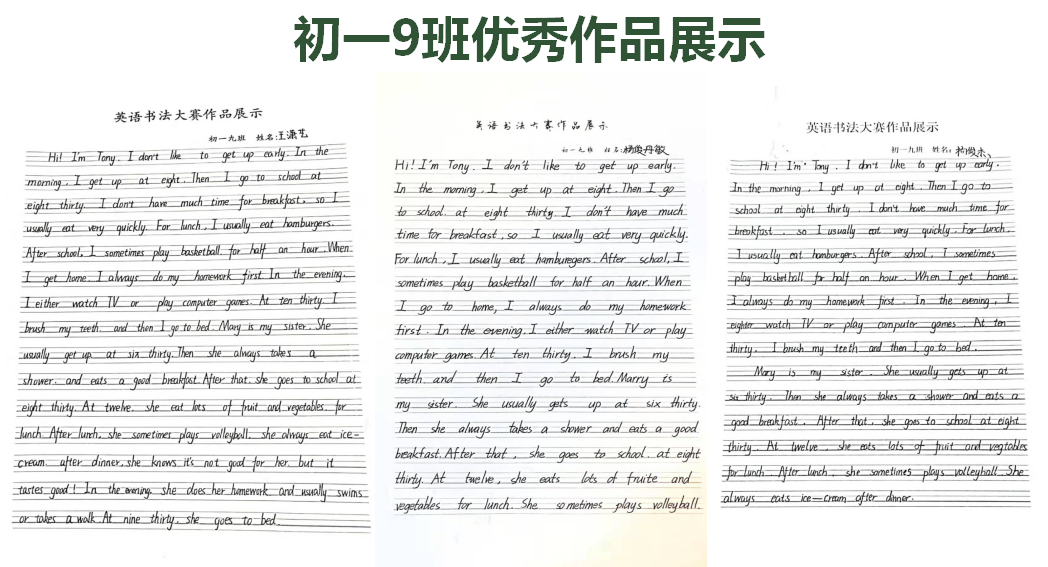 初一9班优秀作品展示
英语书法大赛作品展示
初一九班 姓名:王潇艺
Hi! I'm Tony. I don't like to get up early. In the
morning, I get up at eight. Then I go to school at
eight thirty. I don't have much time for breakfast, so I
usually eat very quickly. For lunch, I usually eat hamburgers.
After school, I sometimes play basketball for half an hour. When
I get home. I always do my homework first. In the evening,
I either watch TV or play computer games. At ten thirty. I
brush my teeth. and then I go to bed. Mary is my sister. She
usually get up at six thirty. Then she always takes a
shower. and eats a good breakfast. After that. she goes to school at
eight thirty. At twelve. she eat lots of fruit and vegetables. for
lunch. After lunch, she sometimes plays volleyball. she always eat ice-
cream. after dinner, she knows it's not good for her. but it
tastes good! In the evening. she does her homework. and usually swims
or takes a walk. At nine thirty. she goes to bed.
英语书法大赛作品展示
初一九班 姓名:杨俊丹敏
Hi! I'm Tony. I don't like to get up early.
In the morning, I get up at eight. Then I go
to school. at eight thirty. I don't have much
time for breakfast, so I usually eat very quickly.
For lunch, I usually eat hamburegers. After school, I
sometimes play basketball for half an hour. When
I go to home, I always do my homework
first. In the evening. I either watch TV or play
computer games. At ten thirty. I brush my
teeth. and then I go to bed. Marry is
my sister. She usually gets up at six thirty.
Then she always takes a shower and eats a good
breakfast. After that, she goes to school. at eight
thirty. At twelve, she eats lots of fruite and
vegetables for lunch. She sometimes plays volleyball.
英语书法大赛作品展示
初一九班 姓名:杨俊杰
Hi! I'm Tony. I don't like to get up early.
In the morning, I get up at eight. Then I go to
school at eight thirty. I don't have much time for
breakfast. so I usually eat very quickly. For lunch.
I usually eat hamburgers. After school, I sometimes
play basketball for half an hour. When I get home.
I always do my homework first. In the evening, I
eighter watch TV or play computer games. At ten
thirty. I brush my teeth and then I go to bed.
Mary is my sister. She usually gets up at
six thirty. Then she always takes a shower and eats a
good breakfast. After that, she goes to school at eight
thirty. At twelve. she eats lots of fruit and vegtables
for lunch. After lunch, she sometimes plays volleyball. She
always eats ice-cream after dinner.